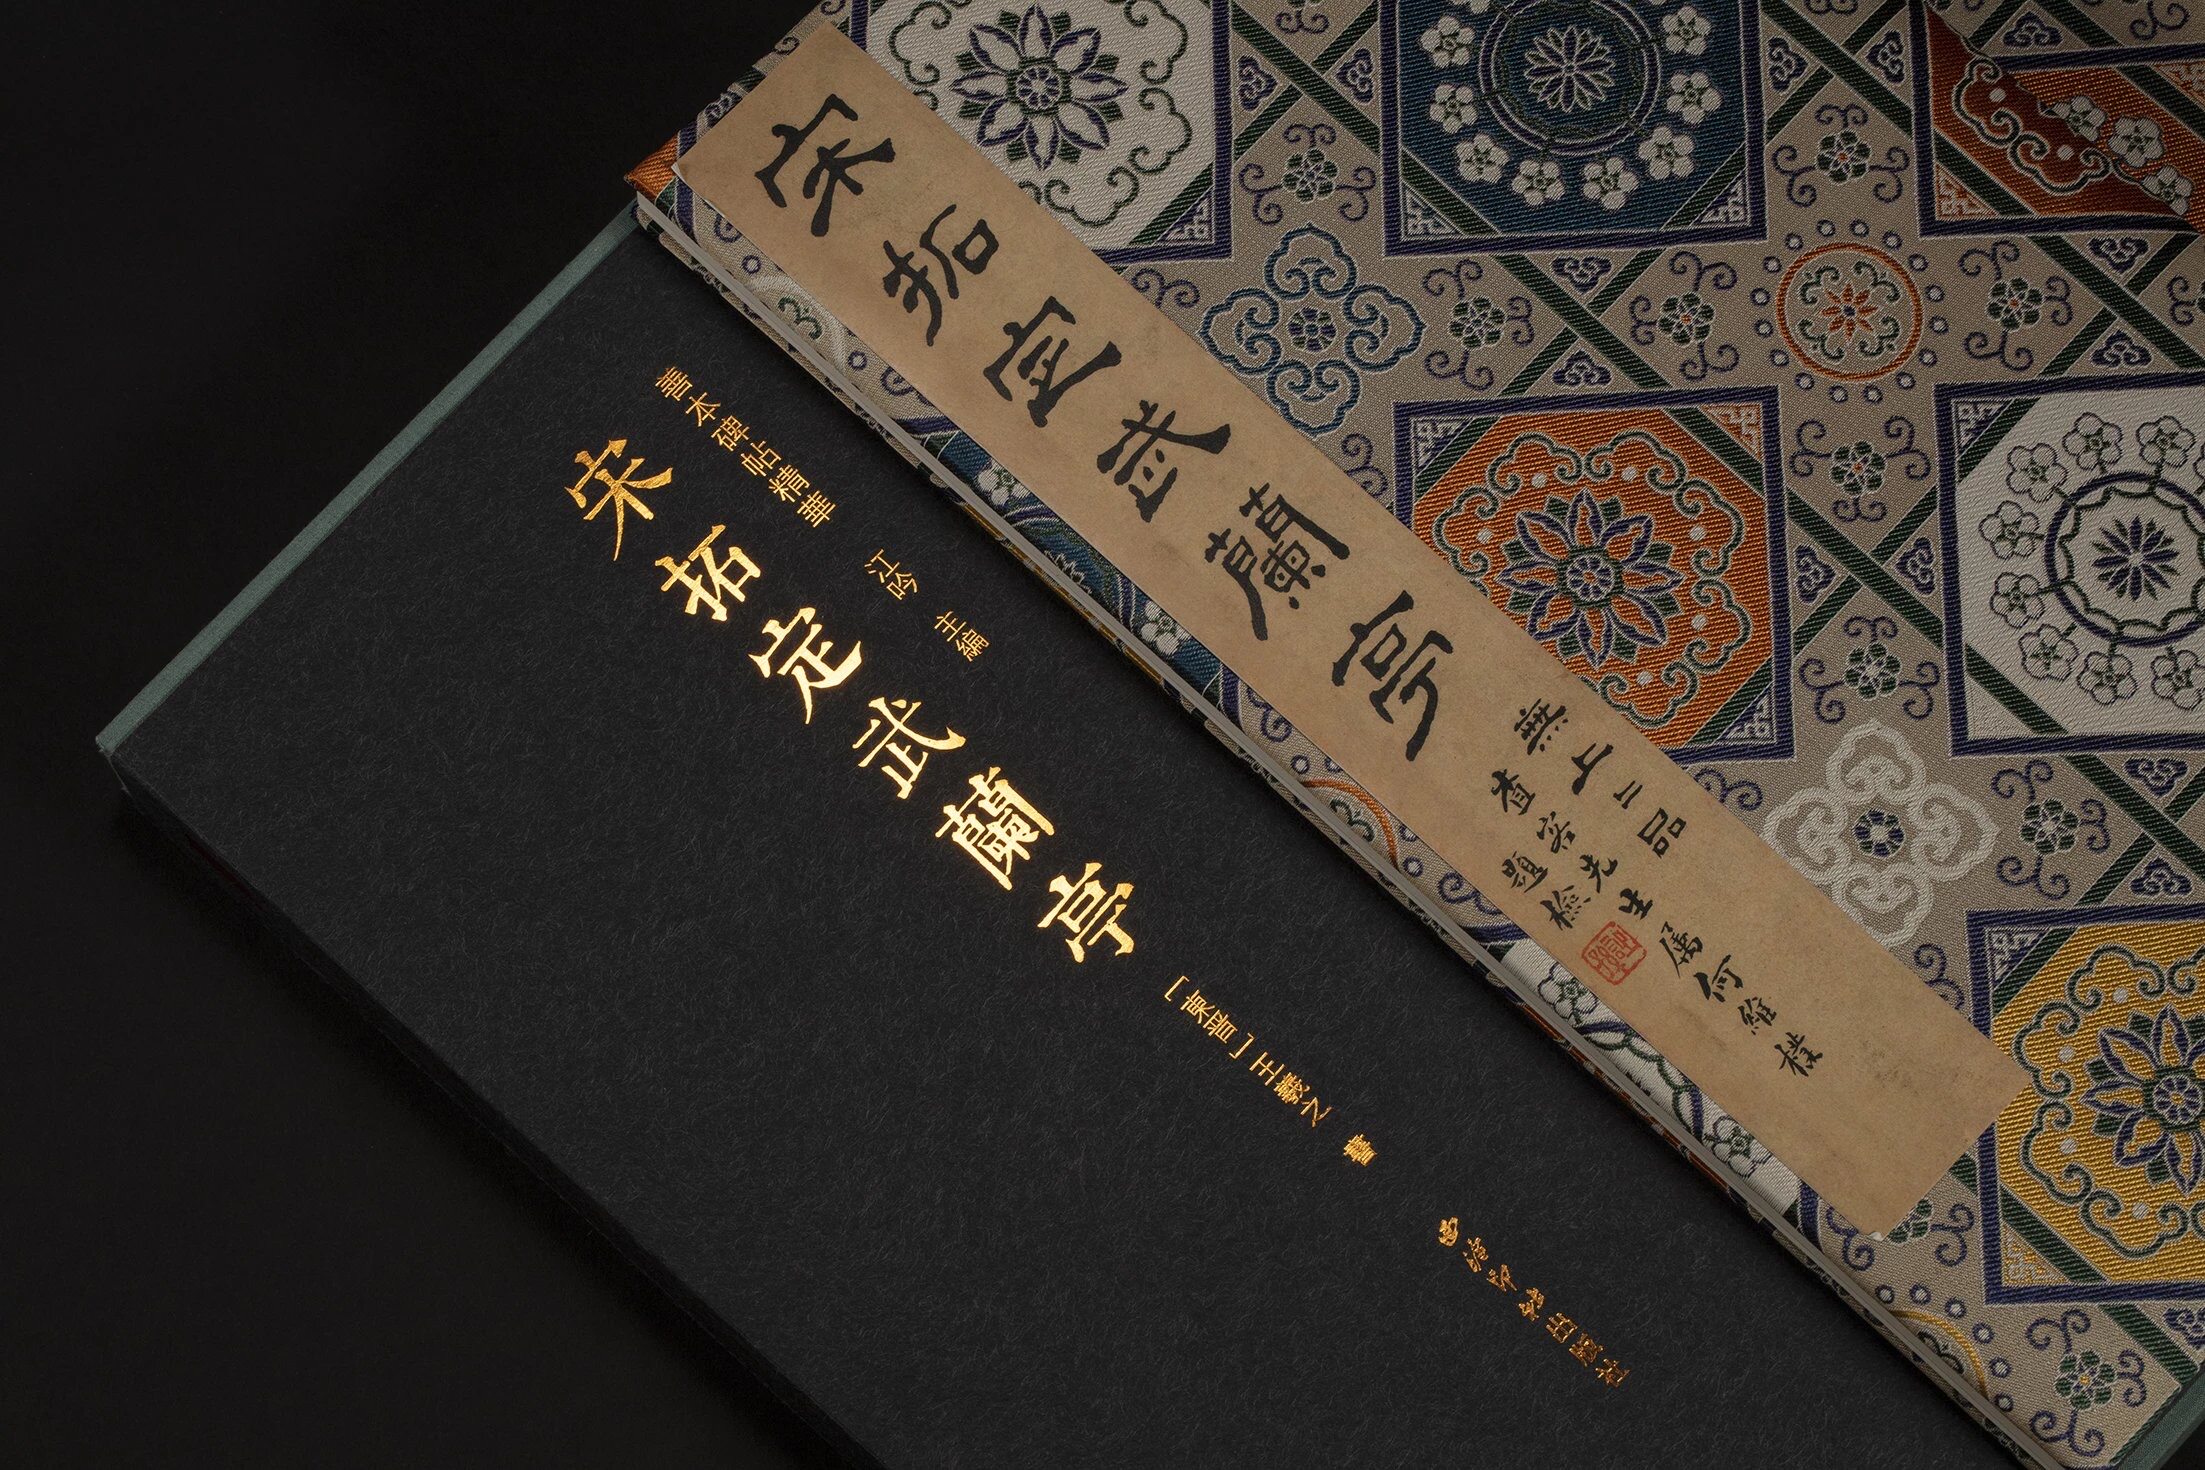 善本碑帖精華 江吟 主編
宋拓定武蘭亭 [東晉]王羲之 書 西泠印社出版社
宋拓定武蘭亭
無上〻品
查客先生屬何維樸
題檢